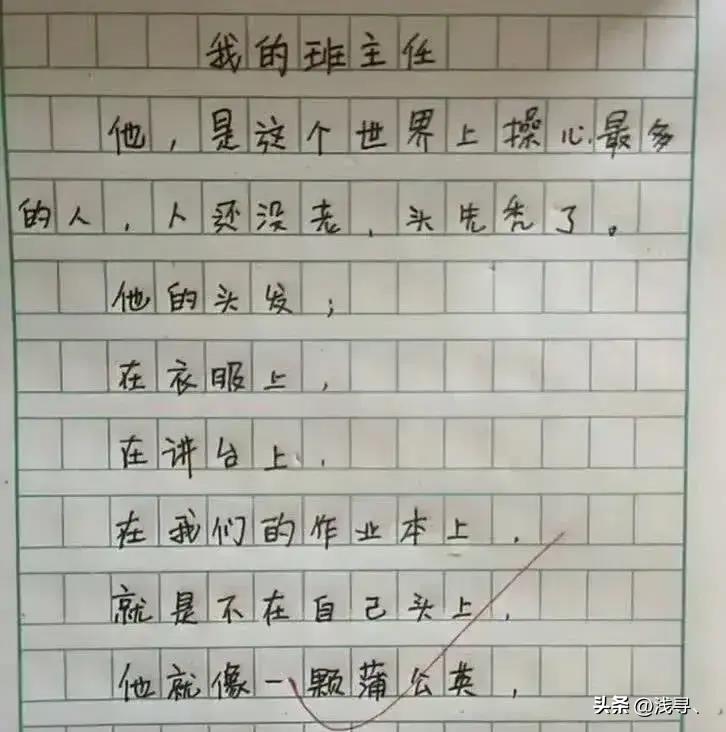 我的班主任
他，是这个世界上操心最多
的人，人还没老，头先秃了。
他的头发；
在衣服上，
在讲台上，
在我们的作业本上，
就是不在自己头上，
他就像一颗蒲公英，
头条 @浅寻、